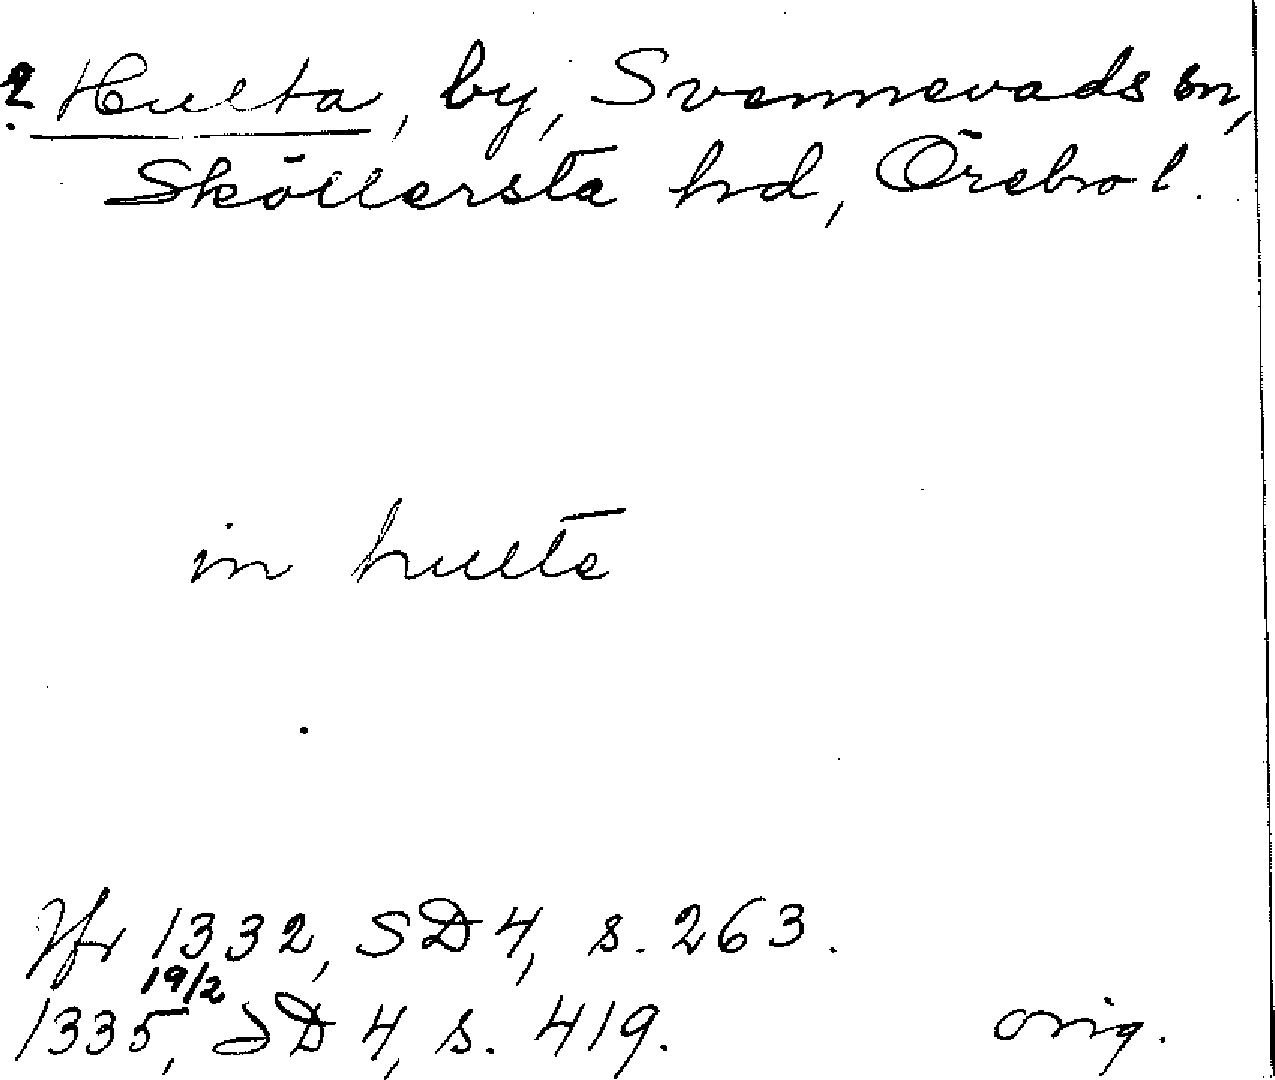 ? Hulta, by, Svennevads sn,
Sköllersta hd, Örebro l.
in hulta
Jfr 1332, SD 4, s. 263.
19/2
1335, SD 4, s. 419. orig.